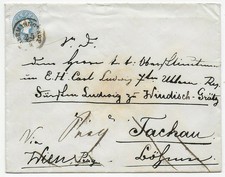 Dem Herrn k. k. Oberstlieutenant
im E. H. Carl Ludwig 7ten Uhlan. Reg.
Fürsten Ludwig zu Windisch-Grätz
Via Prag Tachau
Wien Böhmen